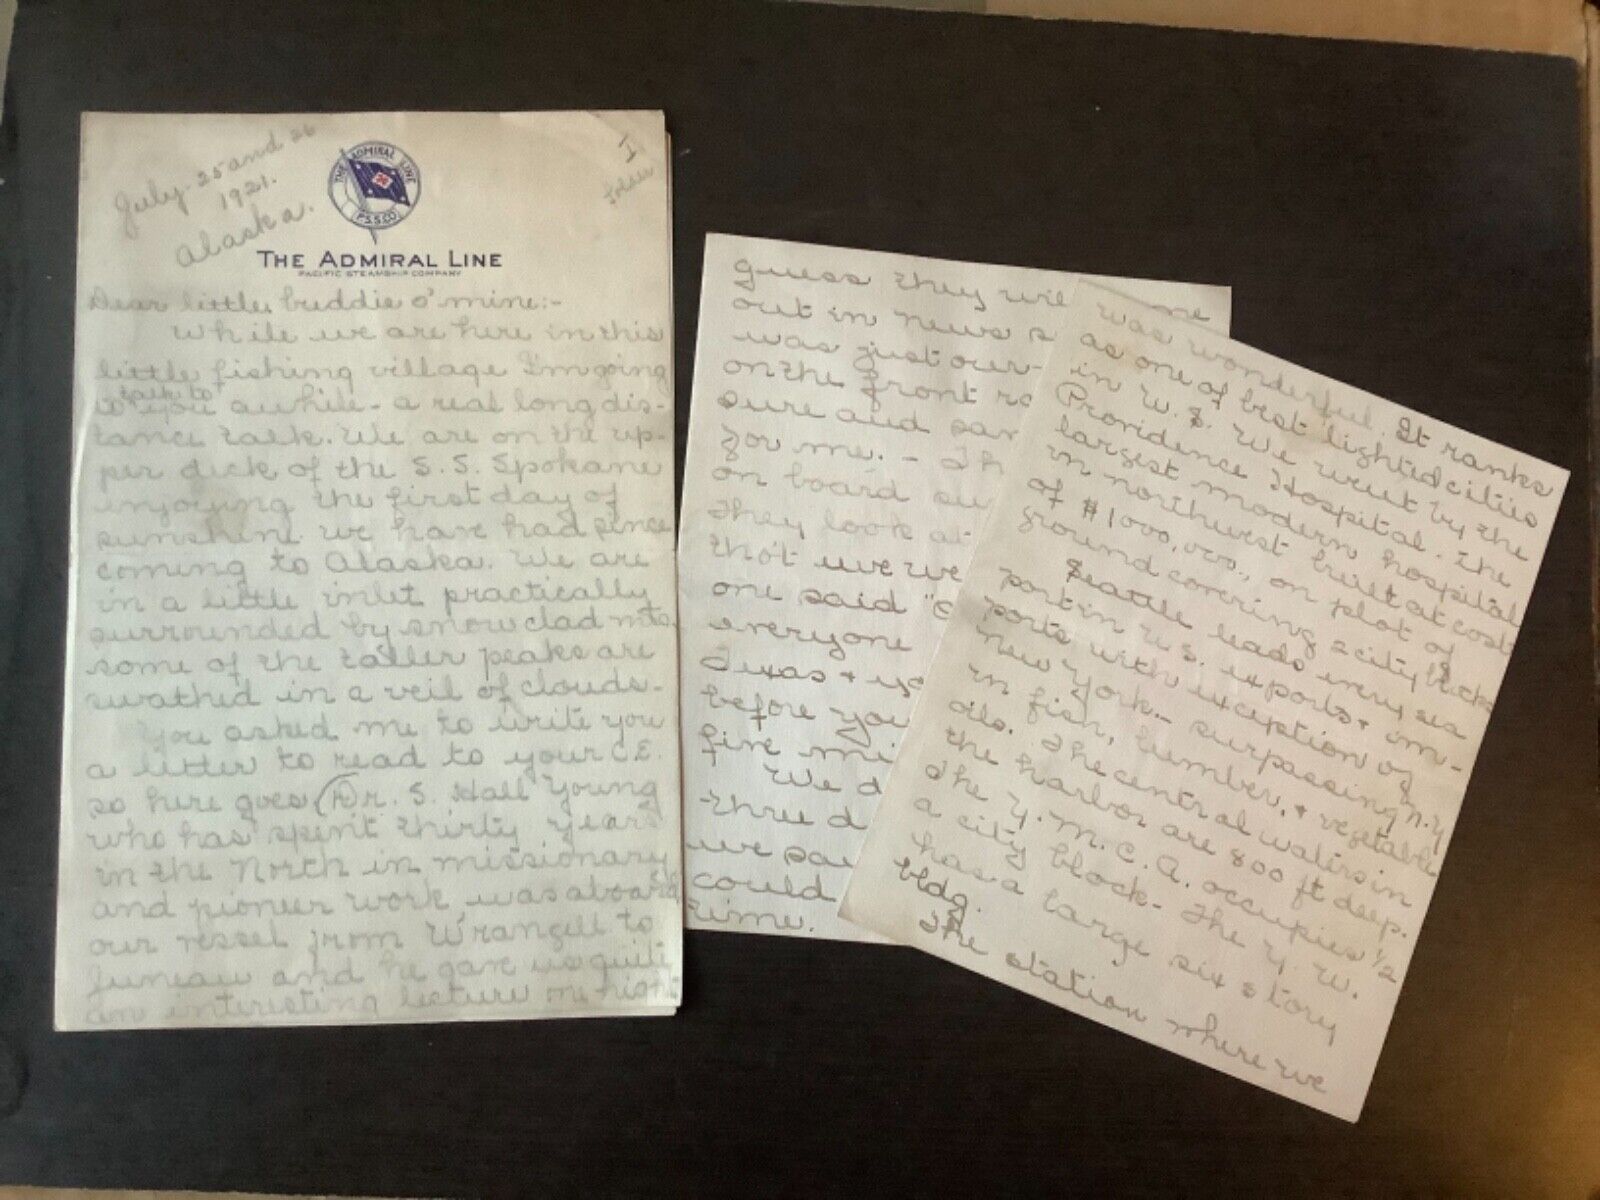 July 25 and 26
1921.
Alaska.
I
THE ADMIRAL LINE
P.S.S.CO.
THE ADMIRAL LINE
PACIFIC STEAMSHIP COMPANY
Dear little buddie o' mine:-
While we are here in this
little fishing village I'm going
talk to
to you awhile - a real long dis-
tance talk. We are on the up-
per deck of the S.S. Spokane
enjoying the first day of
sunshine we have had since
coming to Alaska. We are
in a little inlet practically
surrounded by snow clad mts.
some of the taller peaks are
swathed in a veil of clouds.-
You asked me to write you
a letter to read to your C.E.
so here goes (Dr. S. Hall Young
who has spent thirty years
in the North in missionary
and pioneer work was aboard
our vessel from Wrangell to
Juneau and he gave us quite
an interesting lecture one night
guess they wil
out in news
was just over-
on the front ro
sure and sa
for me. - Th
on board su
They look at
tho't we we
one said "
everyone
Texas & yo
before you
five mi
We d
three d
we sa
could
time.
was wonderful. It ranks
as one of best lighted cities
in U.S. We went by the
Providence Hospital. The
largest modern hospital
in northwest built at cost
of $1000,000., on plot of
ground covering 2 city blocks
Seattle leads every sea
port in U.S. exports & im-
ports with exception of
New York.- surpassing N.Y
in fish, lumber, & vegetable
oils. The central waters in
the harbor are 800 ft deep.
The Y.M.C.A. occupies 1/2
a city block - The Y.W.
has a large six story
bldg.
The station where we